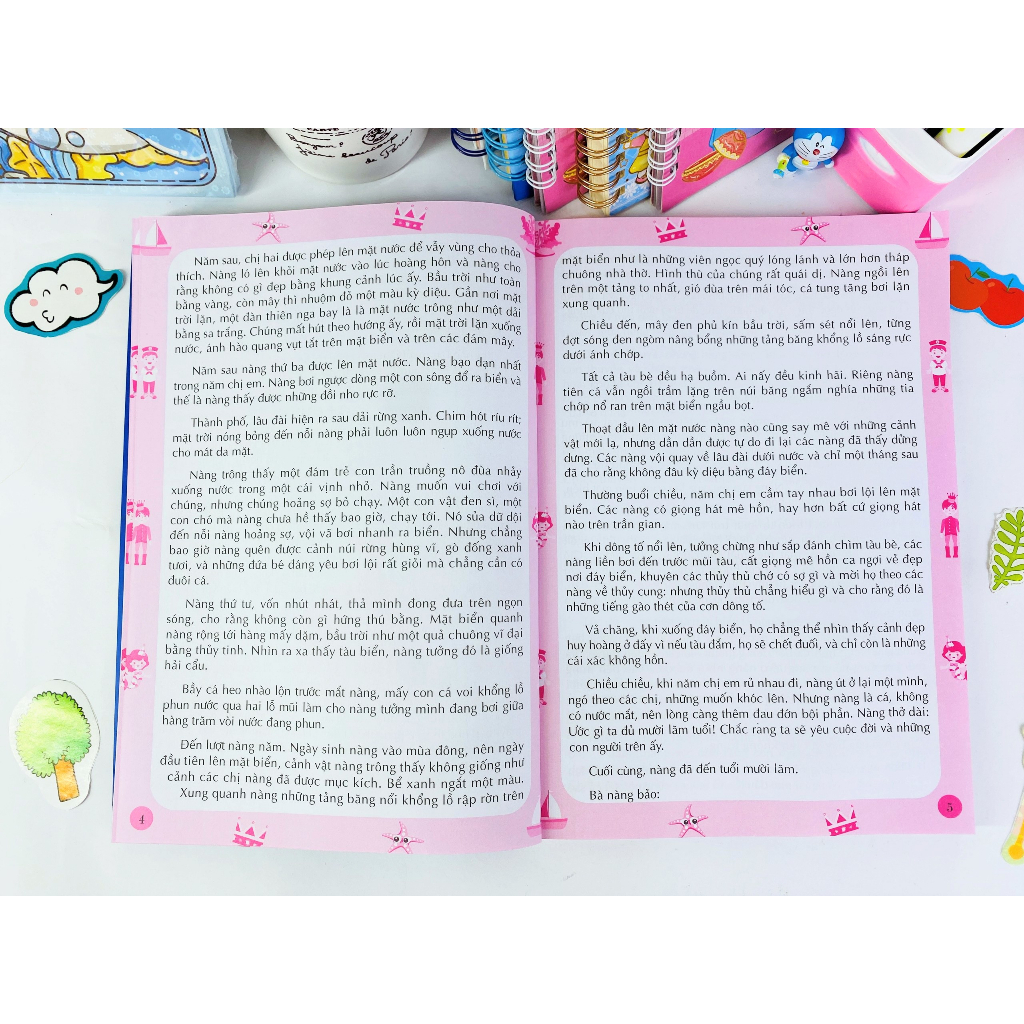 Năm sau, chị hai được phép lên mặt nước để vẫy vùng cho thỏa
thích. Nàng ló lên khỏi mặt nước vào lúc hoàng hôn và nàng cho
rằng không có gì đẹp bằng khung cảnh lúc ấy. Bầu trời như toàn
bằng vàng, còn mây thì nhuộm đỏ một màu kỳ diệu. Gần nơi mặt
trời lặn, một đàn thiên nga bay là là mặt nước trông như một dải
bằng sa trắng. Chúng mất hút theo hướng ấy, rồi mặt trời lặn xuống
nước, ánh hào quang vụt tắt trên mặt biển và trên các đám mây.
Năm sau nàng thứ ba được lên mặt nước. Nàng bạo dạn nhất
trong năm chị em. Nàng bơi ngược dòng một con sông đổ ra biển và
thế là nàng thấy được những đồi nho rực rỡ.
Thành phố, lâu đài hiện ra sau dải rừng xanh. Chim hót ríu rít;
mặt trời nóng bỏng đến nỗi nàng phải luôn luôn ngụp xuống nước
cho mát da mặt.
Nàng trông thấy một đám trẻ con trần truồng nô đùa nhảy
xuống nước trong một cái vịnh nhỏ. Nàng muốn vui chơi với
chúng, nhưng chúng hoảng sợ bỏ chạy. Một con vật đen sì, một
con chó mà nàng chưa hề thấy bao giờ, chạy tới. Nó sủa dữ dội
đến nỗi nàng hoảng sợ, vội vã bơi nhanh ra biển. Nhưng chẳng
bao giờ nàng quên được cảnh núi rừng hùng vĩ, gò đống xanh
tươi, và những đứa bé đáng yêu bơi lội rất giỏi mà chẳng cần có
đuôi cá.
Nàng thứ tư, vốn nhút nhát, thả mình đong đưa trên ngọn
sóng, cho rằng không còn gì hứng thú bằng. Mặt biển quanh
nàng rộng tới hàng mấy dặm, bầu trời như một quả chuông vĩ đại
bằng thủy tinh. Nhìn ra xa thấy tàu biển, nàng tưởng đó là giống
hải cẩu.
Bầy cá heo nhào lộn trước mắt nàng, mấy con cá voi khổng lồ
phun nước qua hai lỗ mũi làm cho nàng tưởng mình đang bơi giữa
hàng trăm vòi nước đang phun.
Đến lượt nàng năm. Ngày sinh nàng vào mùa đông, nên ngày
đầu tiên lên mặt biển, cảnh vật nàng trông thấy không giống như
cảnh các chị nàng đã được mục kích. Bể xanh ngắt một màu.
Xung quanh nàng những tảng băng nổi khổng lồ rập rờn trên
4
mặt biển như là những viên ngọc quý lóng lánh và lớn hơn tháp
chuông nhà thờ. Hình thù của chúng rất quái dị. Nàng ngồi lên
trên một tảng to nhất, gió đùa trên mái tóc, cá tung tăng bơi lặn
xung quanh.
Chiều đến, mây đen phủ kín bầu trời, sấm sét nổi lên, từng
đợt sóng đen ngòm nâng bổng những tảng băng khổng lồ sáng rực
dưới ánh chớp.
Tất cả tàu bè đều hạ buồm. Ai nấy đều kinh hãi. Riêng nàng
tiên cá vẫn ngồi trầm lặng trên núi băng ngắm nghía những tia
chớp nổ ran trên mặt biển ngầu bọt.
Thoạt đầu lên mặt nước nàng nào cũng say mê với những cảnh
vật mới lạ, nhưng dần dần được tự do đi lại các nàng đã thấy dửng
dưng. Các nàng vội quay về lâu đài dưới nước và chỉ một tháng sau
đã cho rằng không đâu kỳ diệu bằng đáy biển.
Thường buổi chiều, năm chị em cầm tay nhau bơi lội lên mặt
biển. Các nàng có giọng hát mê hồn, hay hơn bất cứ giọng hát
nào trên trần gian.
Khi dông tố nổi lên, tưởng chừng như sắp đánh chìm tàu bè, các
nàng liền bơi đến trước mũi tàu, cất giọng mê hồn ca ngợi vẻ đẹp
nơi đáy biển, khuyên các thủy thủ chớ có sợ gì và mời họ theo các
nàng về thủy cung: nhưng thủy thủ chẳng hiểu gì và cho rằng đó là
những tiếng gào thét của cơn dông tố.
Vả chăng, khi xuống đáy biển, họ chẳng thể nhìn thấy cảnh đẹp
huy hoàng ở đấy vì nếu tàu đắm, họ sẽ chết đuối, và chỉ còn là những
cái xác không hồn.
Chiều chiều, khi năm chị em rủ nhau đi, nàng út ở lại một mình,
ngó theo các chị, những muốn khóc lên. Nhưng nàng là cá, không
có nước mắt, nên lòng càng thêm đau đớn bội phần. Nàng thở dài:
Ước gì ta đủ mười lăm tuổi! Chắc rằng ta sẽ yêu cuộc đời và những
con người trên ấy.
Cuối cùng, nàng đã đến tuổi mười lăm.
Bà nàng bảo:
5